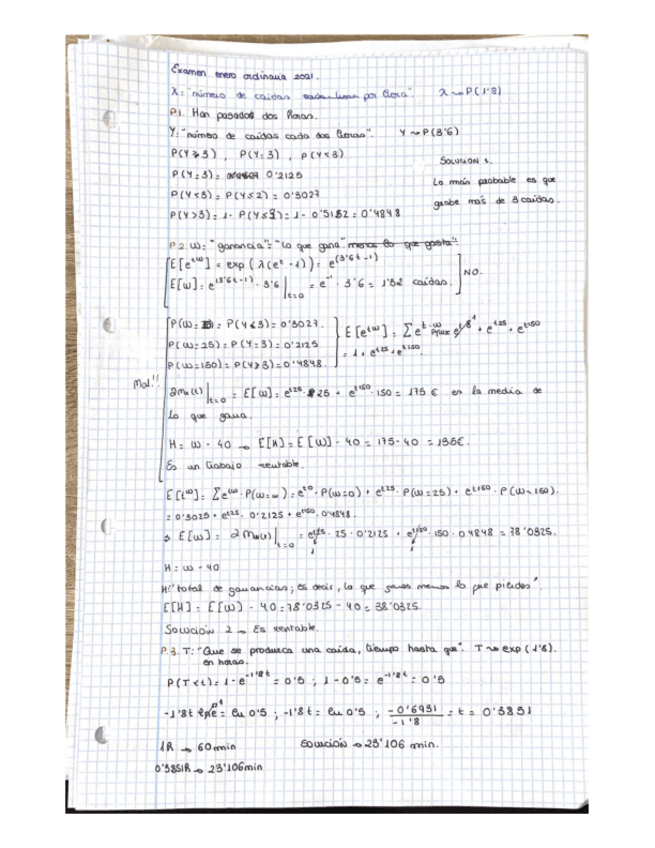 Examen enero ordinaria 2021.
X: "número de caídas cada hora por hora". X ~ P(1'8)
P1. Han pasado dos horas.
Y: "número de caídas cada dos horas". Y ~ P(3'6)
P(Y>3), P(Y=3), P(Y<3)
SOLUCIÓN 1.
P(Y=3) = 0'2125
Lo más probable es que
P(Y<3) = P(Y≤2) = 0'3027
grabe más de 3 caídas.
P(Y>3) = 1 - P(Y≤3) = 1 - 0'5152 = 0'4848
P.2 W: "ganancia" = "lo que gana menos lo que gasta".
E[e^tw] = exp(λ(e^t - 1)) = e^(3'6t-1)
NO.
E[W] = e^(3'6t-1) · 3'6 |t=0 = e^-1 · 3'6 = 1'32 caídas.
P(W=0) = P(Y<3) = 0'3027.
P(W=25) = P(Y=3) = 0'2125
E[e^tw] = Σ e^t·w e^t·0 + e^t25 + e^t150
= 1 + e^t25 + e^t150
P(W=150) = P(Y>3) = 0'4848.
Mal!!
∂Mw(t)|t=0 = E[W] = e^t25 · 25 + e^t150 · 150 = 175 € es la media de
lo que gana.
H = W - 40 → E[H] = E[W] - 40 = 175 - 40 = 135€.
Es un trabajo rentable.
E[t^W] = Σ e^tw · P(W=w) = e^t0 · P(W=0) + e^t25 · P(W=25) + e^t150 · P(W=150).
= 0'3025 + e^t25 · 0'2125 + e^t150 · 0'4848.
→ E[W] = ∂Mw(t)|t=0 = e^t25 · 25 · 0'2125 + e^t150 · 150 · 0'4848 = 78'0325.
1 1
H = W - 40
H: "total de ganancias; es decir, lo que ganas menos lo que pierdes".
E[H] = E[W] - 40 = 78'0325 - 40 = 38'0325.
Solución 2 → Es rentable.
P.3. T: "Que se produzca una caída, tiempo hasta que". T ~ exp(1'8).
en horas.
P(T<t) = 1 - e^-1'8t = 0'5 ; 1 - 0'5 = e^-1'8t = 0'5
-1'8t lne = ln 0'5 ; -1'8t = ln 0'5 ; -0'6931 / -1'8 = t = 0'3851
1h → 60min
SOLUCIÓN → 23'106 min.
0'3851h → 23'106min